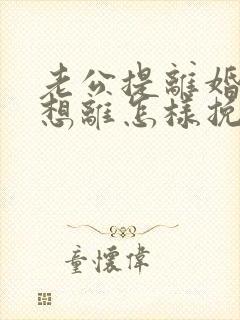 老公提離婚
想離怎樣挽
童懷偉